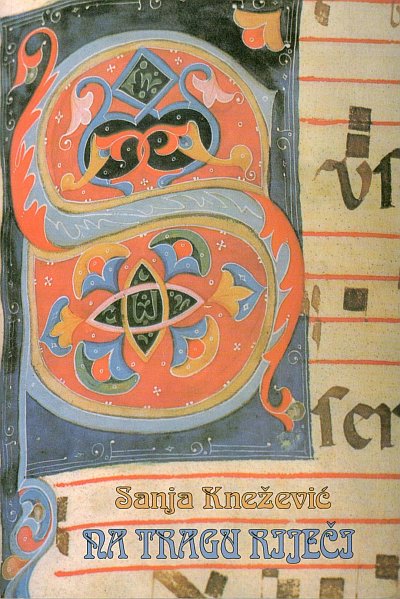 vſ
ſcr
Sanja Knežević
NA TRAGU RIJEČI